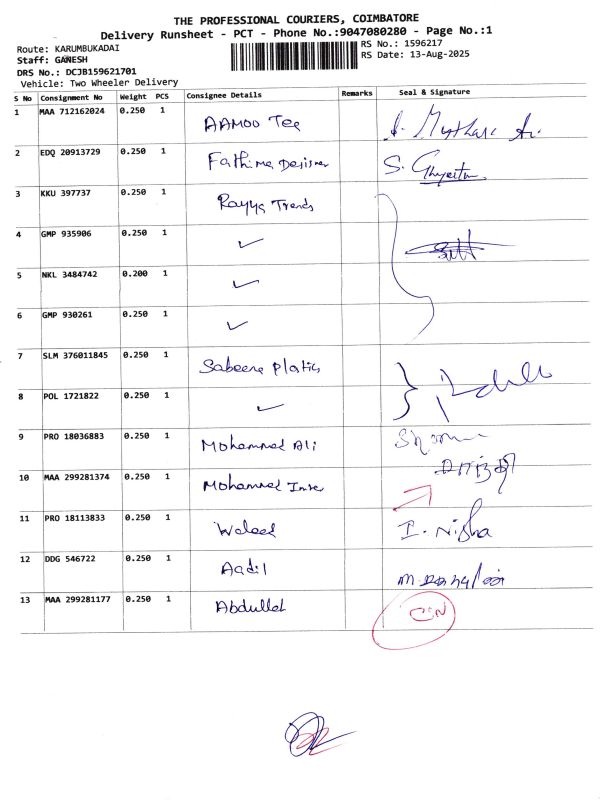 THE PROFESSIONAL COURIERS, COIMBATORE
Delivery Runsheet - PCT - Phone No.:9047080280 - Page No.:1
Route: KARUMBUKADAI
RS No.: 1596217
Staff: GANESH
RS Date: 13-Aug-2025
DRS No.: DCJB159621701
Vehicle: Two Wheeler Delivery
S No Consignment No Weight PCS Consignee Details Remarks Seal & Signature
1 MAA 712162024 0.250 1 AAMOO Tex
2 EDQ 20913729 0.250 1 Fathima Desisner S.
3 KKU 397737 0.250 1 Rayya Trends
4 GMP 935906 0.250 1 ✓
5 NKL 3484742 0.200 1 ✓
6 GMP 930261 0.250 1 ✓
7 SLM 376011845 0.250 1 Sabeena Platics
8 POL 1721822 0.250 1 ✓
9 PRO 18036883 0.250 1 Mohammed Ali
10 MAA 299281374 0.250 1 Mohammed
11 PRO 18113833 0.250 1 Waleed I. Nisha
12 DDG 546722 0.250 1 Aadil
13 MAA 299281177 0.250 1 Abdullah